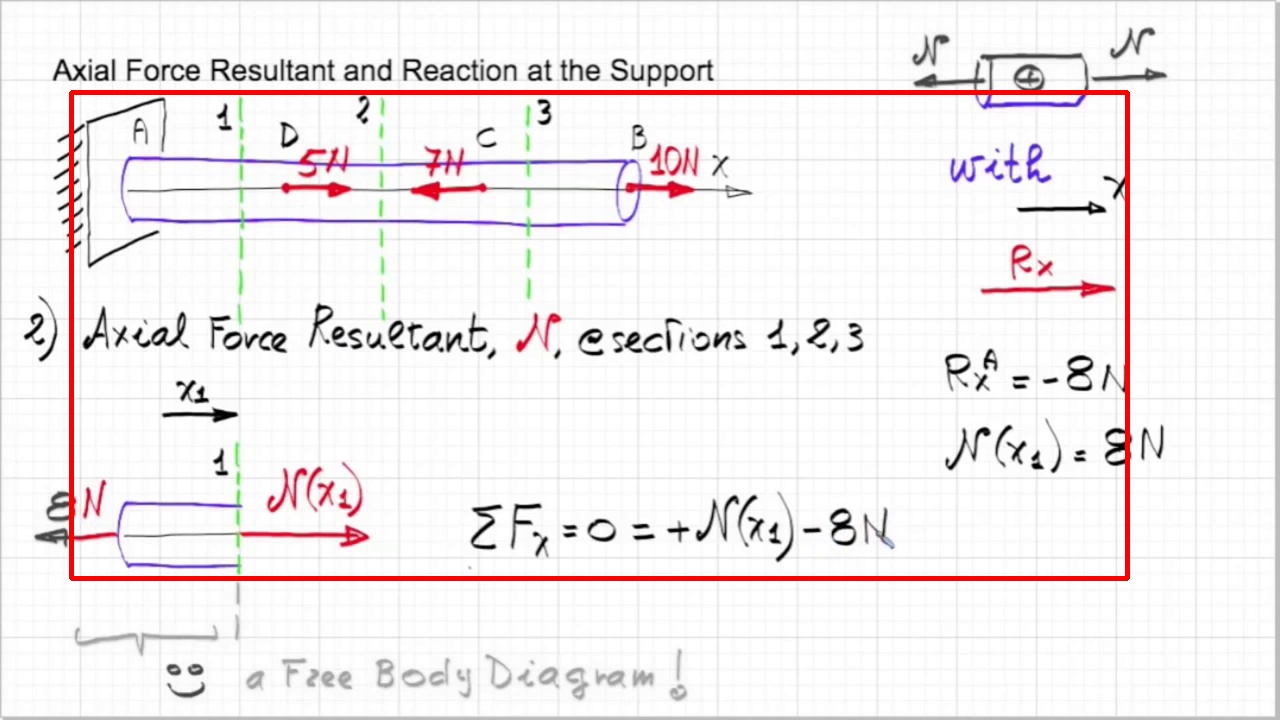 N N
Axial Force Resultant and Reaction at the Support
A 1 D 2 C 3 B
5N 7N 10N x
with
x
Rx
2) Axial Force Resultant, N, @sections 1,2,3
RxA = -8N
x1
N(x1) = 8N
1
8N N(x1)
ΣFx = 0 = +N(x1) - 8N
a Free Body Diagram!